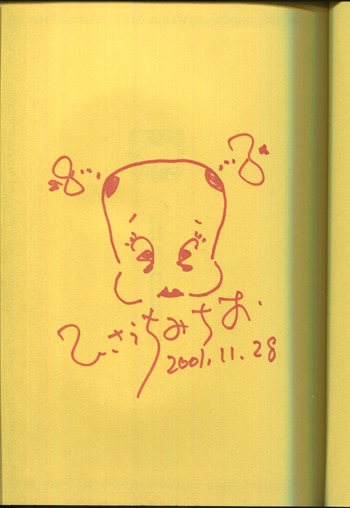 ひさうちみちお
2001.11.28